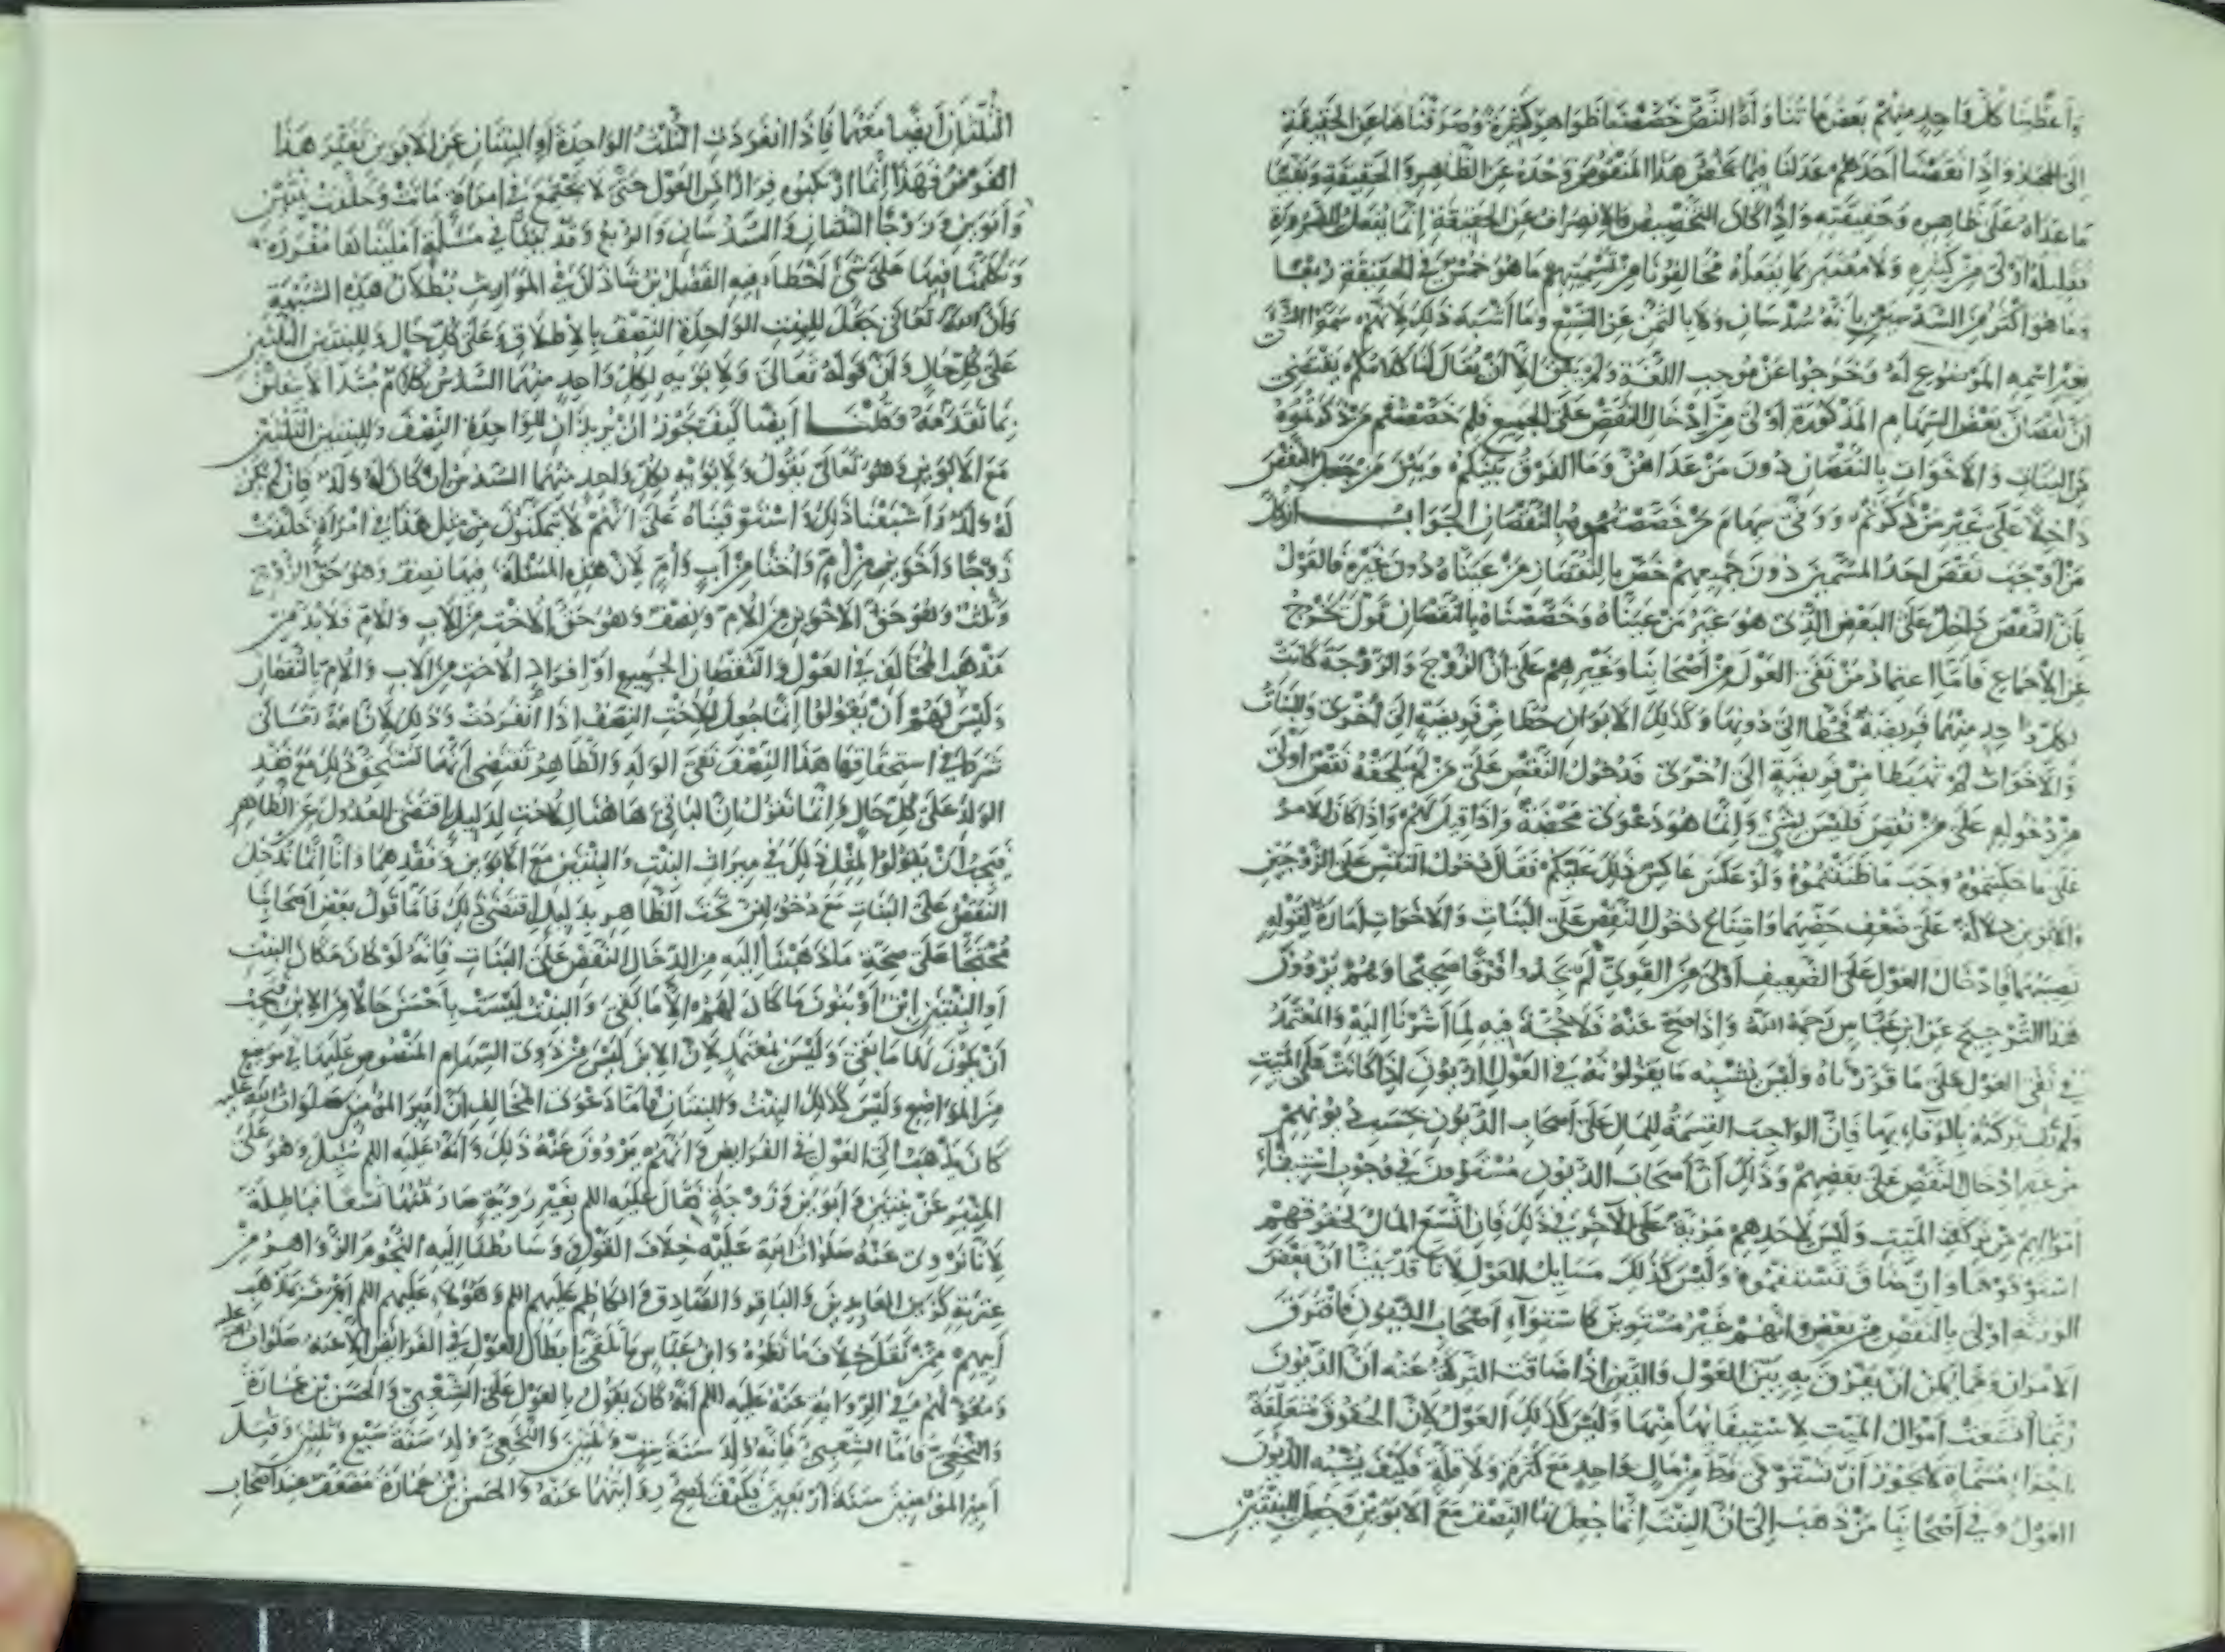 واعطينا كل واحد منهم بعض ما تناوله النص خصصنا ظواهر كثيرة وصرفناها عن الحقيقة
الى المجاز واذا نقصنا احدهم عدلنا فيما يخص هذا المنقوص وحده عن الظاهر والحقيقة وبقينا
ما عداه على ظاهره وحقيقته واذا كان التخصيص والانصراف عن الحقيقة انما يفعل للضرورة
فقليله اولى من كثيره ولا معتبر بما يفعله مخالفونا من تسميتهم ما هو خمس في الحقيقة ربعا
وما هو اكثر من السدسين بانه سدسان ولا بالثمن عن التسع وما اشبه ذلك لانهم سموا الشئ
بغير اسمه الموضوع له وخرجوا عن موجب اللغة ولم يبق الا ان يقال لنا كلامكم يقتضي
ان نقصان بعض السهام المذكورة اولى من ادخال النقص على الجميع فلم خصصتم من ذكرتموه
من البنات والاخوات بالنقصان دون من عداهن وما الفرق بينكم وبين من جعل النقص
داخلا على غير من ذكرتم ووفى سهام من خصصتموه بالنقصان الجواب ان كل
من اوجب نقص احد المسمين دون جميعهم خص بالنقصان من عيناه دون غيره فالقول
بان النقص داخل على البعض الذي هو غير من عيناه وخصصناه بالنقصان قول يخرج
عن الاجماع فاما اعتماد من نفى العول من اصحابنا وغيرهم على ان الزوج والزوجة كانت
لكل واحد منهما فريضة فحطا الى دونها وكذلك الابوان حطا من فريضة الى اخرى والبنات
والاخوات لم تهبطا من فريضة الى اخرى فدخول النقص على من لم يلحقه نقص اولى
من دخوله على من نقص فليس بشئ وانما هو دعوى محضة واذا قيل لهم واذا كان الامر
على ما حكيتموه وجب ما ظننتموه ولو عكس عاكس ذلك عليكم فقال دخول النقص على الزوجين
والابوين دلالة على ضعف حضهما وامتناع دخول النقص على البنات والاخوات امارة لقوله
نصيبهما فادخال العول على الضعيف اولى من القوي لم يجدوا فرقا صحيحا وهم يروون
هذا الترجيح عن ابن عباس رحمة الله واذا صح عنه فلا حجة فيه لما اشرنا اليه والمعتمد
في نفى العول على ما قررناه وليس يشبه ما يقولونه في العول الديون اذا كانت على الميت
ولم تف تركته بالوفاء بها فان الواجب القسمة للمال على اصحاب الديون بحسب ديونهم
من غير ادخال النقص على بعضهم وذلك ان اصحاب الديون مستوون في وجوب استيفاء
اموالهم من تركة الميت وليس لاحدهم مزية على الاخر في ذلك فان اتسع المال لحقوقهم
استوفوها وان ضاق تساهموه وليس كذلك مسايل العول لانا قد بينا ان بعض
الورثة اولى بالنقص من بعض وانهم غير مستوين كاستواء اصحاب الديون فافترق
الامران ومما يمكن ان يفرق به بين العول والدين اذا ضاقت التركة عنه ان الديون
ربما اتسعت اموال الميت لاستيفائها منها وليس كذلك العول لان الحقوق متعلقة
باجزاء مسماة لا يجوز ان تستوفى قط من مال واحد مع كثرة ولا قلة فكيف يشبه الديون
العول وفي اصحابنا من ذهب الى ان البنت انما جعل لها النصف مع الابوين وجعل للبنتين
الثلثان ايضا معهما فاذا انفردت الثلث الواحدة او البنتان عن الابوين تغير هذا
الفرض فهذا انما ارتكبوه فرارا من العول حتى لا يجتمع في امراة ماتت وخلفت بنتين
وابوين وزوجا الثلثان والسدسان والربع وقد بينا في مسئلة امليناها مفردة
وتكلمنا فيها على شئ اخطاء فيه الفضل بن شاذان في المواريث بطلان هذه الشبهة
وان الله تعالى جعل للبنت الواحدة النصف بالاطلاق وعلى كل حال وللبنتين الثلثين
على كل حال وان قوله تعالى ولابويه لكل واحد منهما السدس كلام مبتدأ لا يتعلق
بما تقدمه وقلنا ايضا كيف يجوز ان يريد ان للواحدة النصف وللبنتين الثلثين
مع الابوين وهو تعالى يقول ولابويه لكل واحد منهما السدس ان كان له ولد فان لم يكن
له ولد واشبعنا ذلك واستوفيناه على انهم لا يتمكنون من مثل هذا في امراة خلفت
زوجا واخوين من ام واختا من اب وام لان هذه المسئلة فيها نصف وهو حق الزوج
وثلث وهو حق الاخوين من الام ونصف وهو حق الاخت من الاب والام فلا بد من
مذهب المخالف في العول والنقصان الجميع او افراد الاخت من الاب والام بالنقصان
وليس لهم ان يقولوا انما جعل للاخت النصف اذا انفردت وذلك لان الله تعالى
شرط في استحقاقها هذا النصف نفى الولد والظاهر يقتضي انها تستحق ذلك مع فقد
الولد على كل حال وانما نقول بان الباقي هاهنا للاخت لدليل اقتضى العدول عن الظاهر
فيجب ان يقولوا لمثل ذلك في ميراث البنت والبنتين مع الابوين وفقدهما وانا انما ندخل
النقص على البنات مع دخولهن تحت الظاهر بدليل اقتضى ذلك فاما قول بعض اصحابنا
محتجا على صحة ما ذهبنا اليه من ادخال النقص على البنات فانه لو كان مكان البنت
او البنتين ابن او بنون ما كان لهم الا ما بقي والبنت ليست باحسن حالا من الابن فيجب
ان يكون لها ما بقي وليس بمعتمد لان الابن ليس من ذوى السهام المنصوص عليها في موضع
من المواضع وليس كذلك البنت والبنتان فاما دعوى المخالف ان امير المؤمنين صلوات الله عليه
كان يذهب الى العول في الفرايض وانهم يروون عنه ذلك وانه عليه السلم سئل وهو على
المنبر عن بنتين وابوين وزوجة فقال عليه السلم بغير روية صار ثمنها تسعا فباطلة
لانا نروى عنه صلوات الله عليه خلاف القول ووسائطنا اليه النجوم الزواهر من
عترته كزين العابدين والباقر والصادق والكاظم عليهم السلم وهؤلاء عليهم السلم اعرف بمذهب
ابيهم ممن نقل خلاف ما نقلوه وابن عباس ما تلقى ابطال العول في الفرائض الا عنه صلوات الله عليه
ومعولهم في الرواية عنه عليه السلم انه كان يقول بالعول على الشعبي والحسن بن عمارة
والنخعي فاما الشعبي فانه ولد سنة ست وثلثين والنخعي ولد سنة سبع وثلثين وقتل
امير المؤمنين سنة اربعين فكيف تصح روايتهما عنه والحسن بن عمارة مضعف عند اصحاب